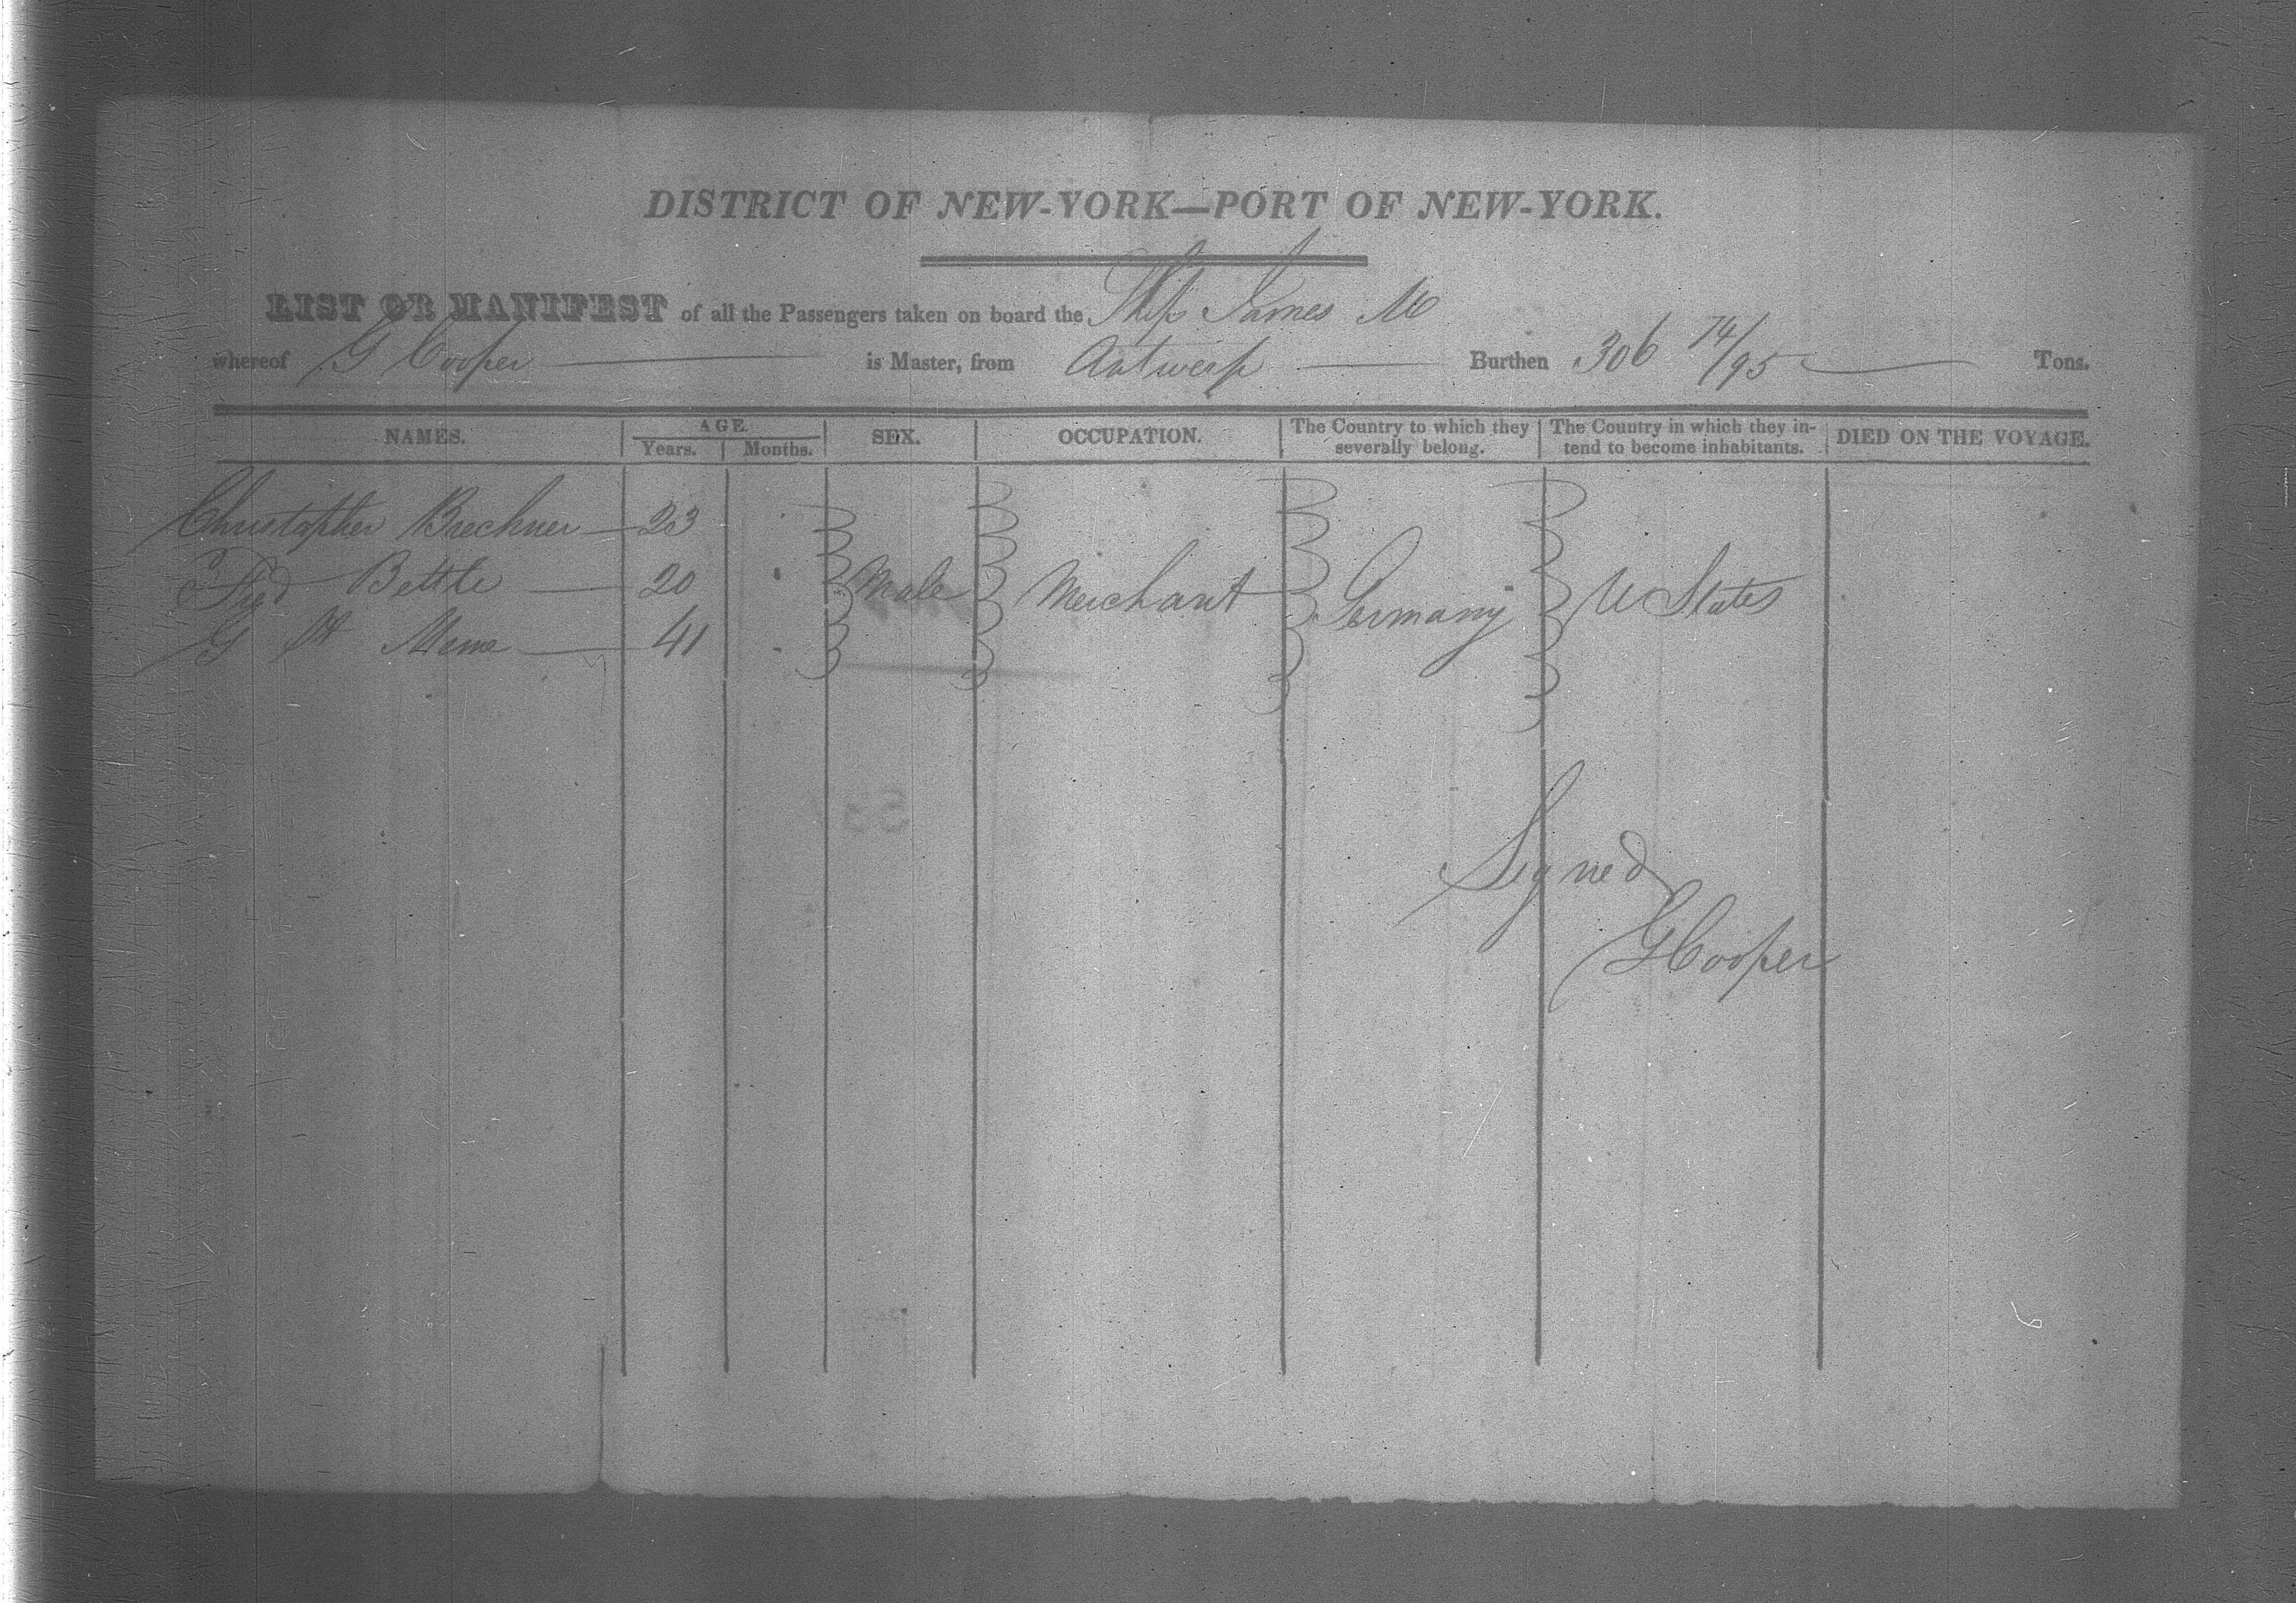 DISTRICT OF NEW-YORK—PORT OF NEW-YORK.
LIST OR MANIFEST of all the Passengers taken on board the Ship James M
whereof G Cooper is Master, from Antwerp Burthen 306 74/95 Tons.
NAMES. AGE. Years. Months. SEX. OCCUPATION. The Country to which they severally belong. The Country in which they intend to become inhabitants. DIED ON THE VOYAGE.
Christopher Brechner 23
Bettle 20 Male Merchant Germany U States
G H 41
Signed
G Cooper